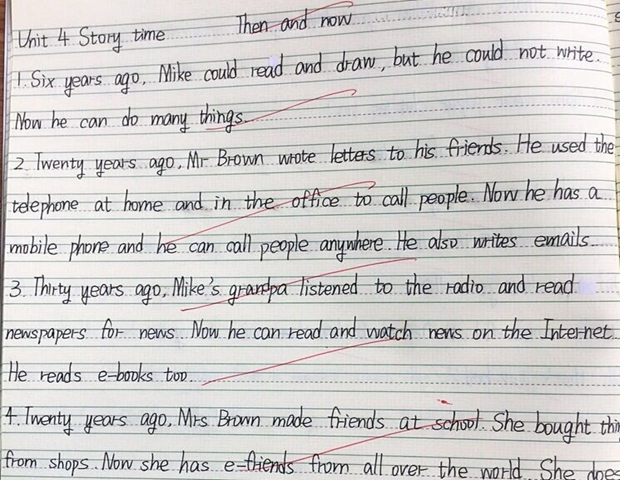 Unit 4 Story time Then and now
1. Six years ago, Mike could read and draw, but he could not write.
Now he can do many things.
2. Twenty years ago, Mr Brown wrote letters to his friends. He used the
telephone at home and in the office to call people. Now he has a
mobile phone and he can call people anywhere. He also writes emails.
3. Thirty years ago, Mike's grandpa listened to the radio and read
newspapers for news. Now he can read and watch news on the Internet.
He reads e-books too.
4. Twenty years ago, Mrs Brown made friends at school. She bought
from shops. Now she has e-friends from all over the world. She does